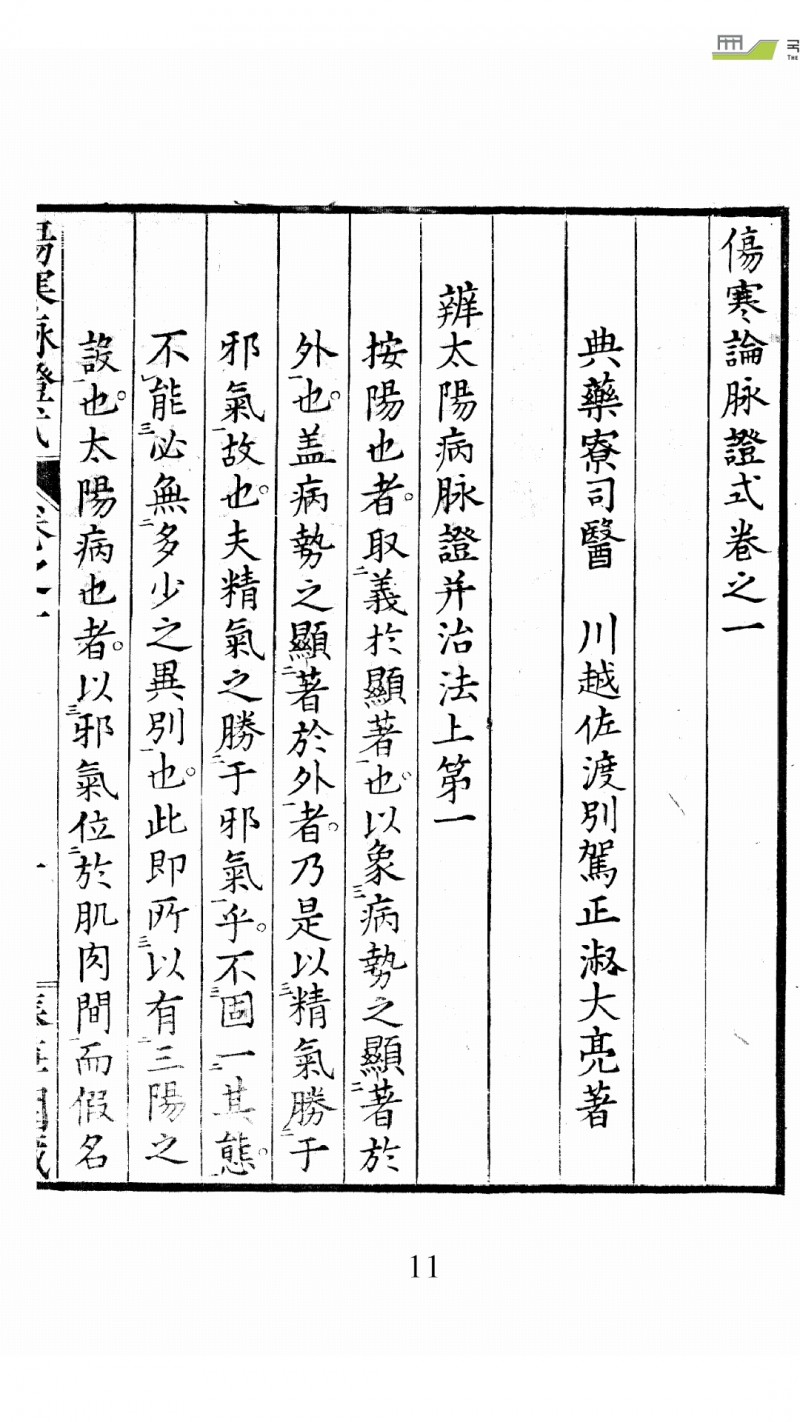 傷寒論脉證式卷之一
典藥寮司醫　川越佐渡別駕正淑大亮著
辨太陽病脉證并治法上第一
按陽也者。取義於顯著也。以象病勢之顯著於
外也。盖病勢之顯著於外者。乃是以精氣勝于
邪氣故也。夫精氣之勝于邪氣乎。不固一其態。
不能必無多少之異別也。此即所以有三陽之
設也。太陽病也者。以邪氣位於肌肉間而假名
傷寒脉證式 卷之一
一
国
THE
11